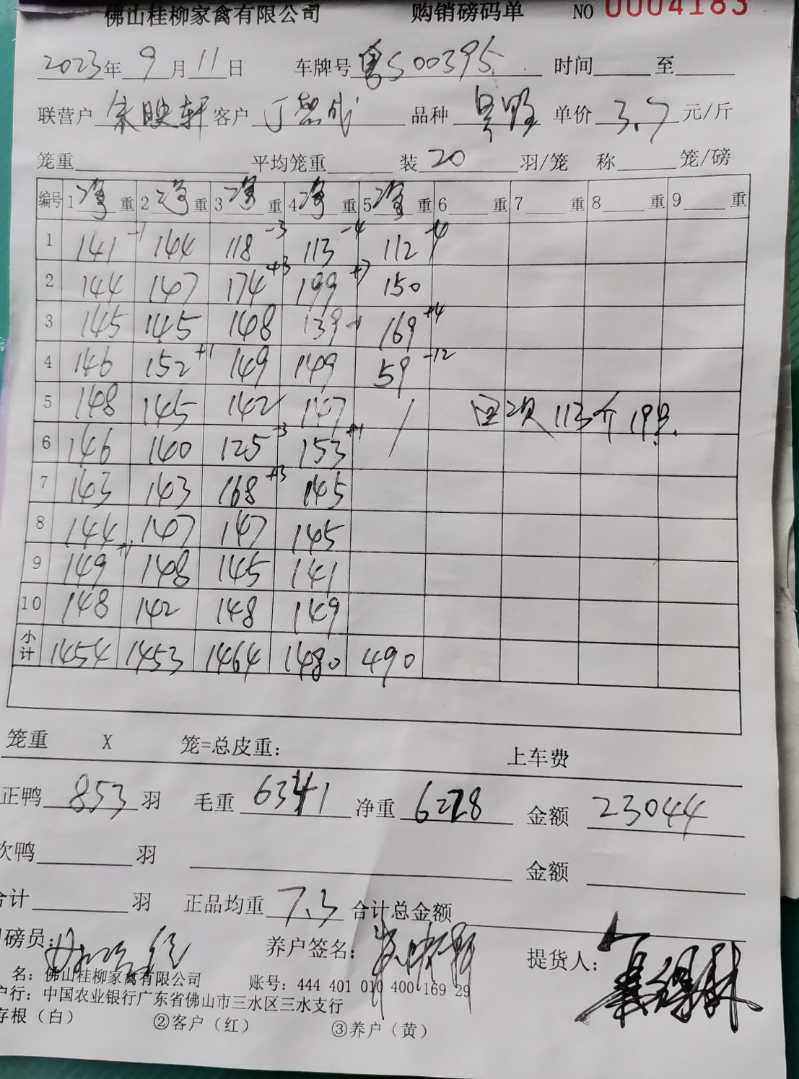 佛山桂柳家禽有限公司 购销磅码单 NO 0004183
2023年 9月 11日 车牌号 粤S00395 时间 至
联营户 客户 丁 品种 单价 3.7 元/斤
笼重 平均笼重 装 20 羽/笼 称 笼/磅
编号 1 净 重 2 净 重 3 净 重 4 净 重 5 净 重 6 重 7 重 8 重 9 重
1 141 -1 144 118 -3 113 -4 112 -4
2 144 147 174 +3 199 +7 150
3 145 145 148 139 -1 169 +4
4 146 152 +1 149 149 59 -12
5 148 145 142 147 / 回次 113斤 19只.
6 146 140 125 -3 153 +1
7 143 143 168 +3 145
8 144 147 147 145
9 149 +1 148 145 141
10 148 142 148 149
小计 1454 1453 1464 1480 490
笼重 X 笼=总皮重: 上车费
正鸭 853 羽 毛重 6341 净重 6228 金额 23044
次鸭 羽 金额
合计 羽 正品均重 7.3 合计总金额
磅员: 养户签名: 提货人:
名: 佛山桂柳家禽有限公司 账号: 444 401 010 400 169 29
户行: 中国农业银行广东省佛山市三水区三水支行
存根（白） ②客户（红） ③养户（黄）